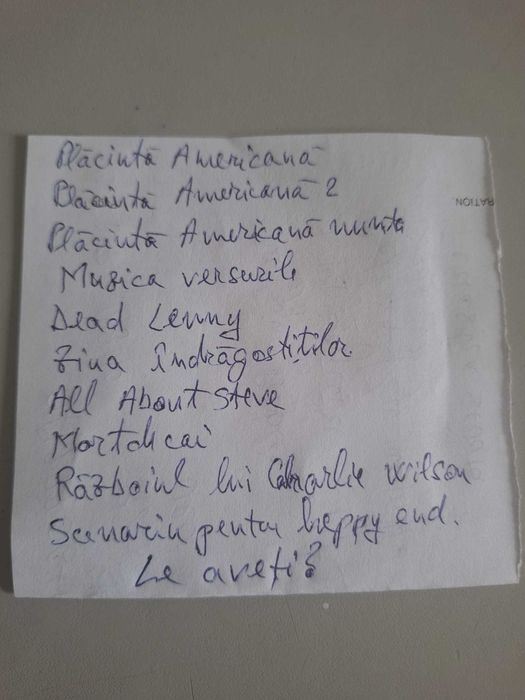 Plăcintă Americană
Plăcintă Americană 2
Plăcintă Americană nunta
Muzica versurile
Dead Lenny
Ziua îndrăgostiților
All About Steve
Mortdecai
Războiul lui Charlie Wilson
Scenariu pentru happy end.
Le aveți?
RATION